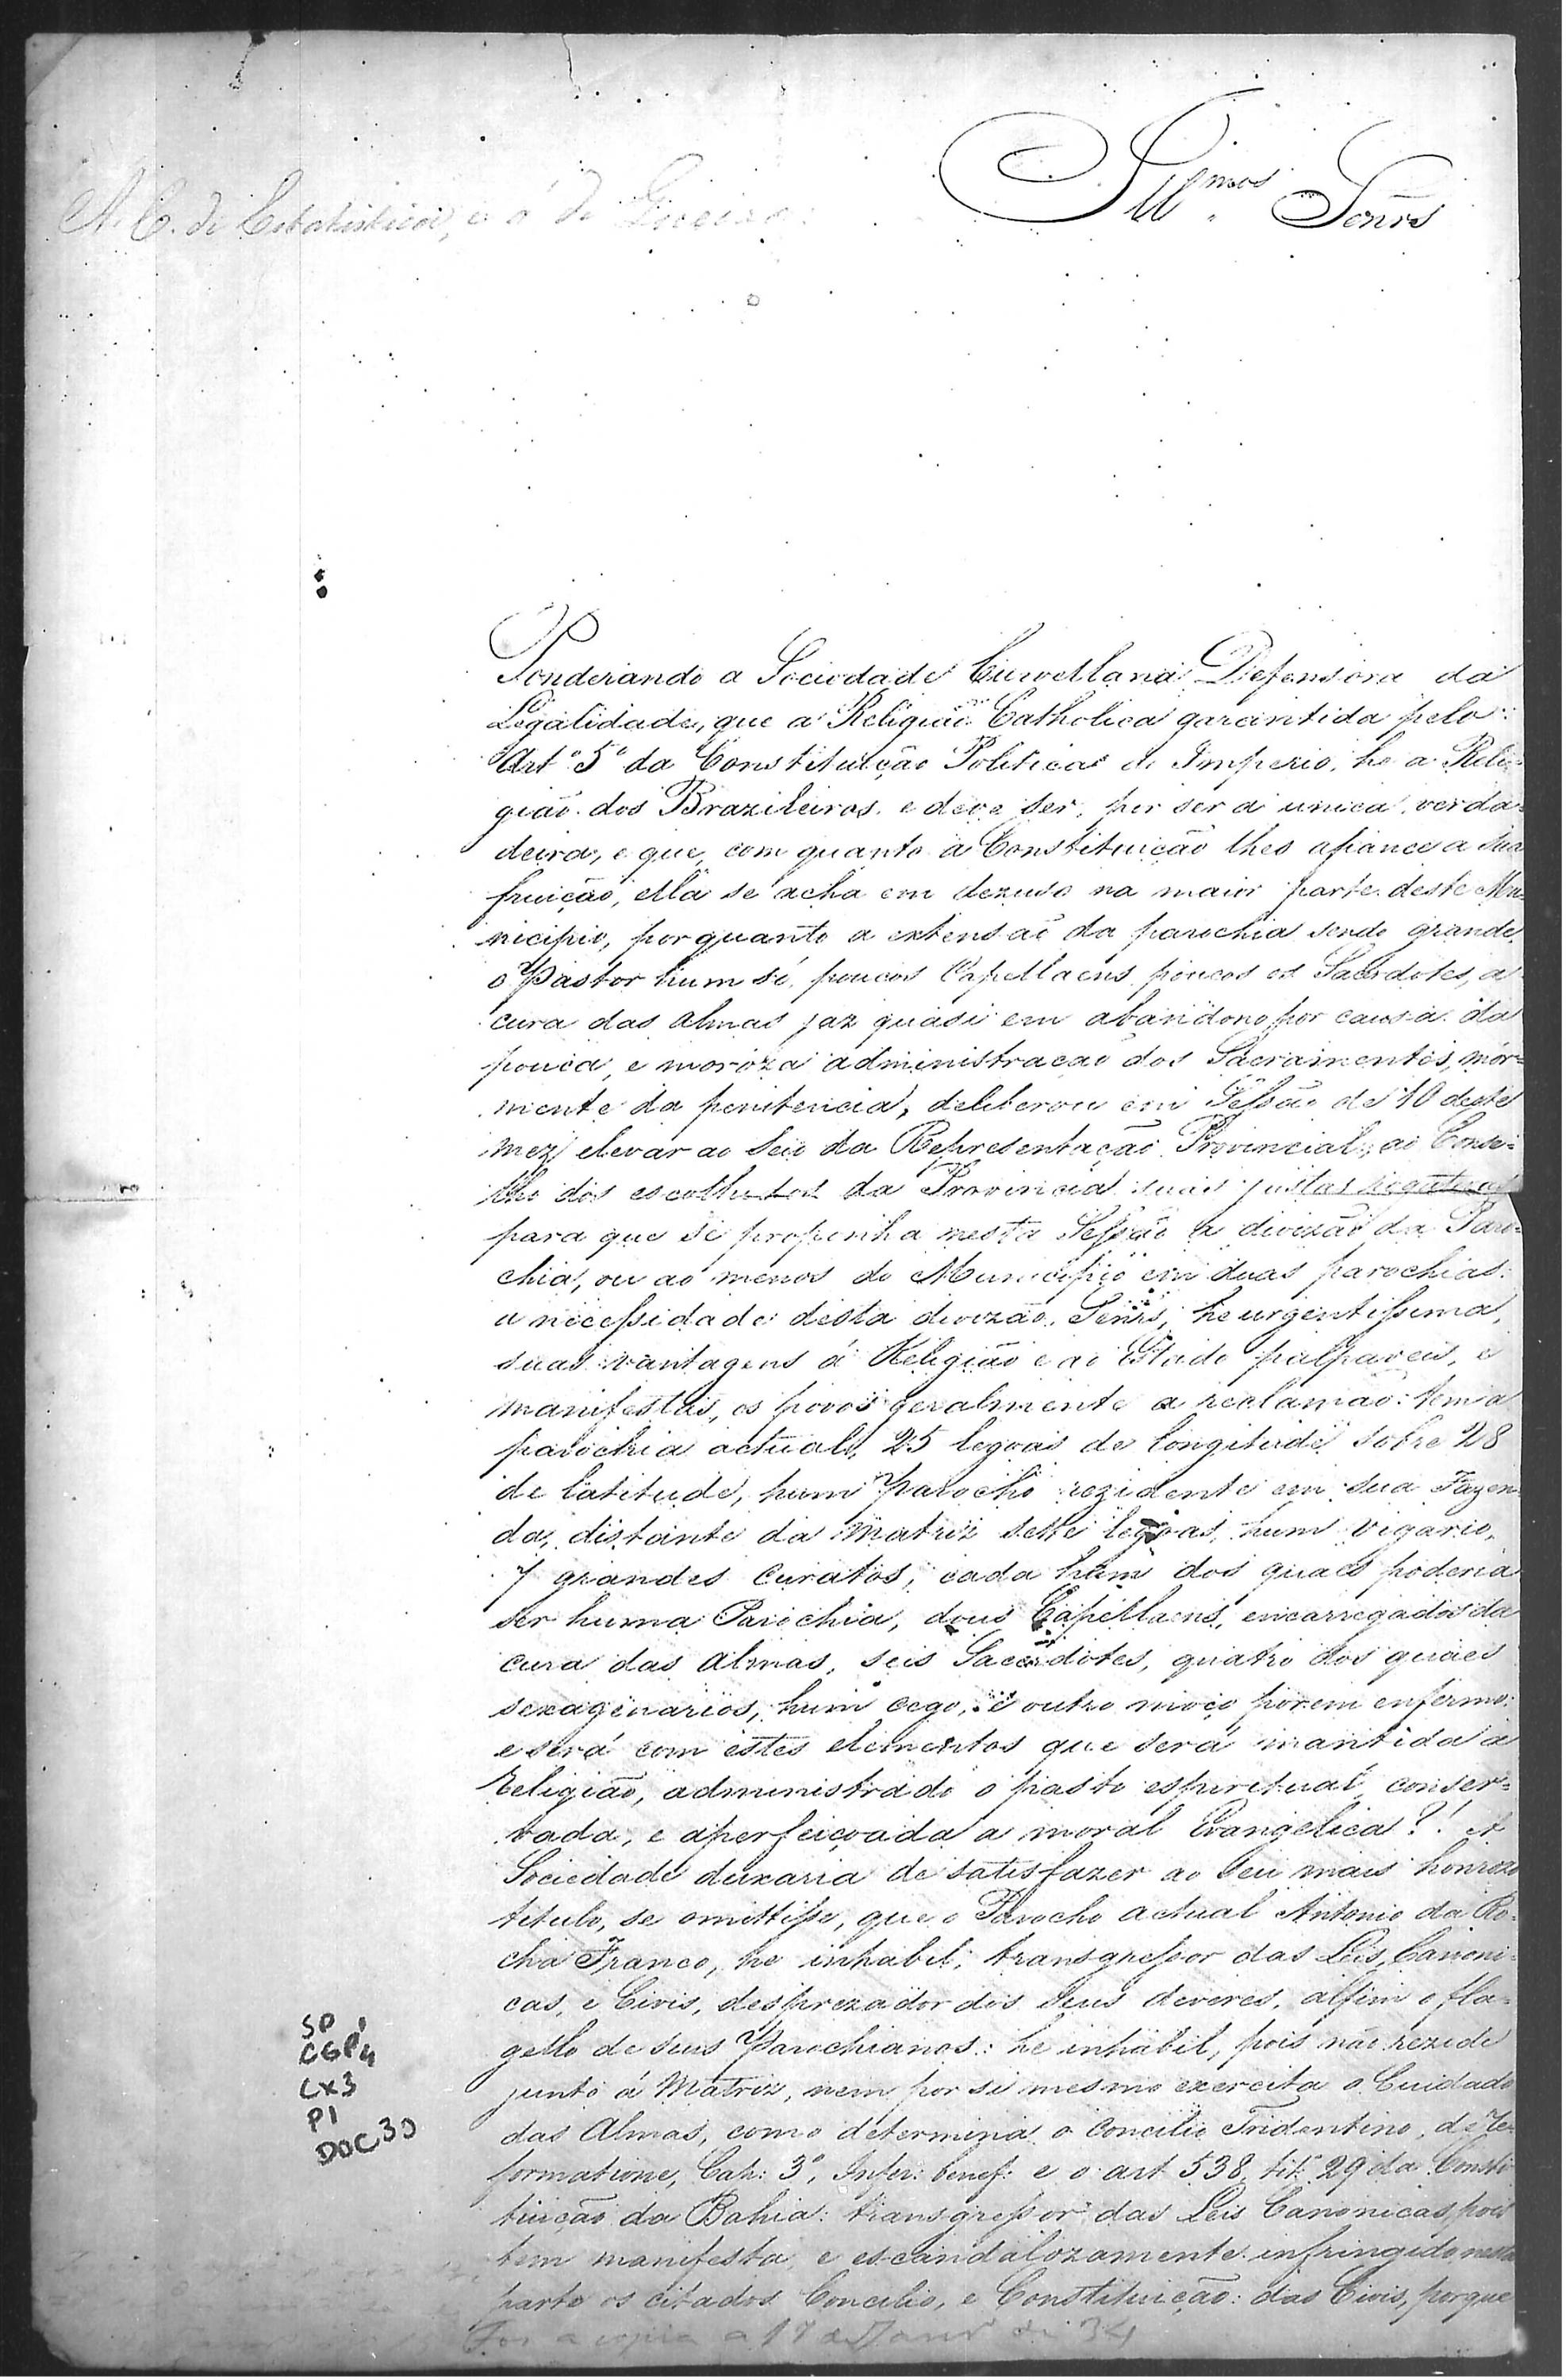 Ill.mos Senr̃s
A C. de Estatistica, e á de
Ponderando a Sociedade Curvellana Defensora da
Legalidade, que a Religião Catholica garantida pelo
Artº 5º da Constituição Politica do Imperio, he a Reli=
gião dos Brazileiros, e deve ser, por ser a unica verda=
deira, e que, com quanto a Constituição lhes afiance a sua
fruição, ella se acha em dezuso na maior parte deste Mu=
nicipio, porquanto a extensaõ da parochia sendo grande,
o Pastor hum só, poucos Capellaens, poucos os Sacerdotes, a
cura das almas jaz quasi em abandono por causa da
pouca, e moroza administracaõ dos Sacramentos, mór=
mente da penitencia, deliberou em Sessão de 10 deste
mez elevar ao seio da Representação Provincial, ao Conse=
lho dos escolhidos da Provincia suas justas rogativas
para que se proponha nesta Sessão a divizão da Paro=
chia, ou ao menos do Municipio em duas parochias:
a necessidade desta divizão, Senr̃s, he urgentissima,
suas vantagens á Religião e ao Estado palpaveis, e
manifestas, os povos geralmente a reclamaõ: tem a
parochia actual 25 legoas de longitude sobre 28
de latitude, hum Parocho rezidente em sua Fazen=
da, distante da Matriz sette legoas, hum vigario,
7 grandes Curatos, cada hum dos quaes poderia
ser huma Parochia, dous Capellaens, encarregados da
cura das almas, seis Sacerdotes, quatro dos quaes
sexagenarios, hum cego, e outro moço porem enfermo:
e será com estes elementos que será mantida a
Religião, administrado o pasto espiritual, conser=
vada, e aperfeiçoada a moral Evangelica?! A
Sociedade deixaria de satisfazer ao seu mais honrozo
titulo, se omittisse, que o Parocho actual Antonio da Ro=
cha Franco, he inhabil, transgressor das Leis Canoni=
cas, e Civis, desprezador dos seus deveres, alfim o fla=
gello de seus Parochianos: he inhabil, pois não rezide
junto á Matriz, nem por si mesmo exercita o Cuidado
das Almas, como determina o Concilio Tridentino, de re=
formatione, Cap: 3º, Infer: benef: e o art 538, tit: 29 da Consti=
tuição da Bahia: transgressor das Leis Canonicas, pois
tem manifesta, e escandalozamente infringido nesta
parte os citados Concilio, e Constituição: das Civis, porque
Foi a copia a 17 de Janrº de 34
SP
CGP4
CX3
P1
DOC 30